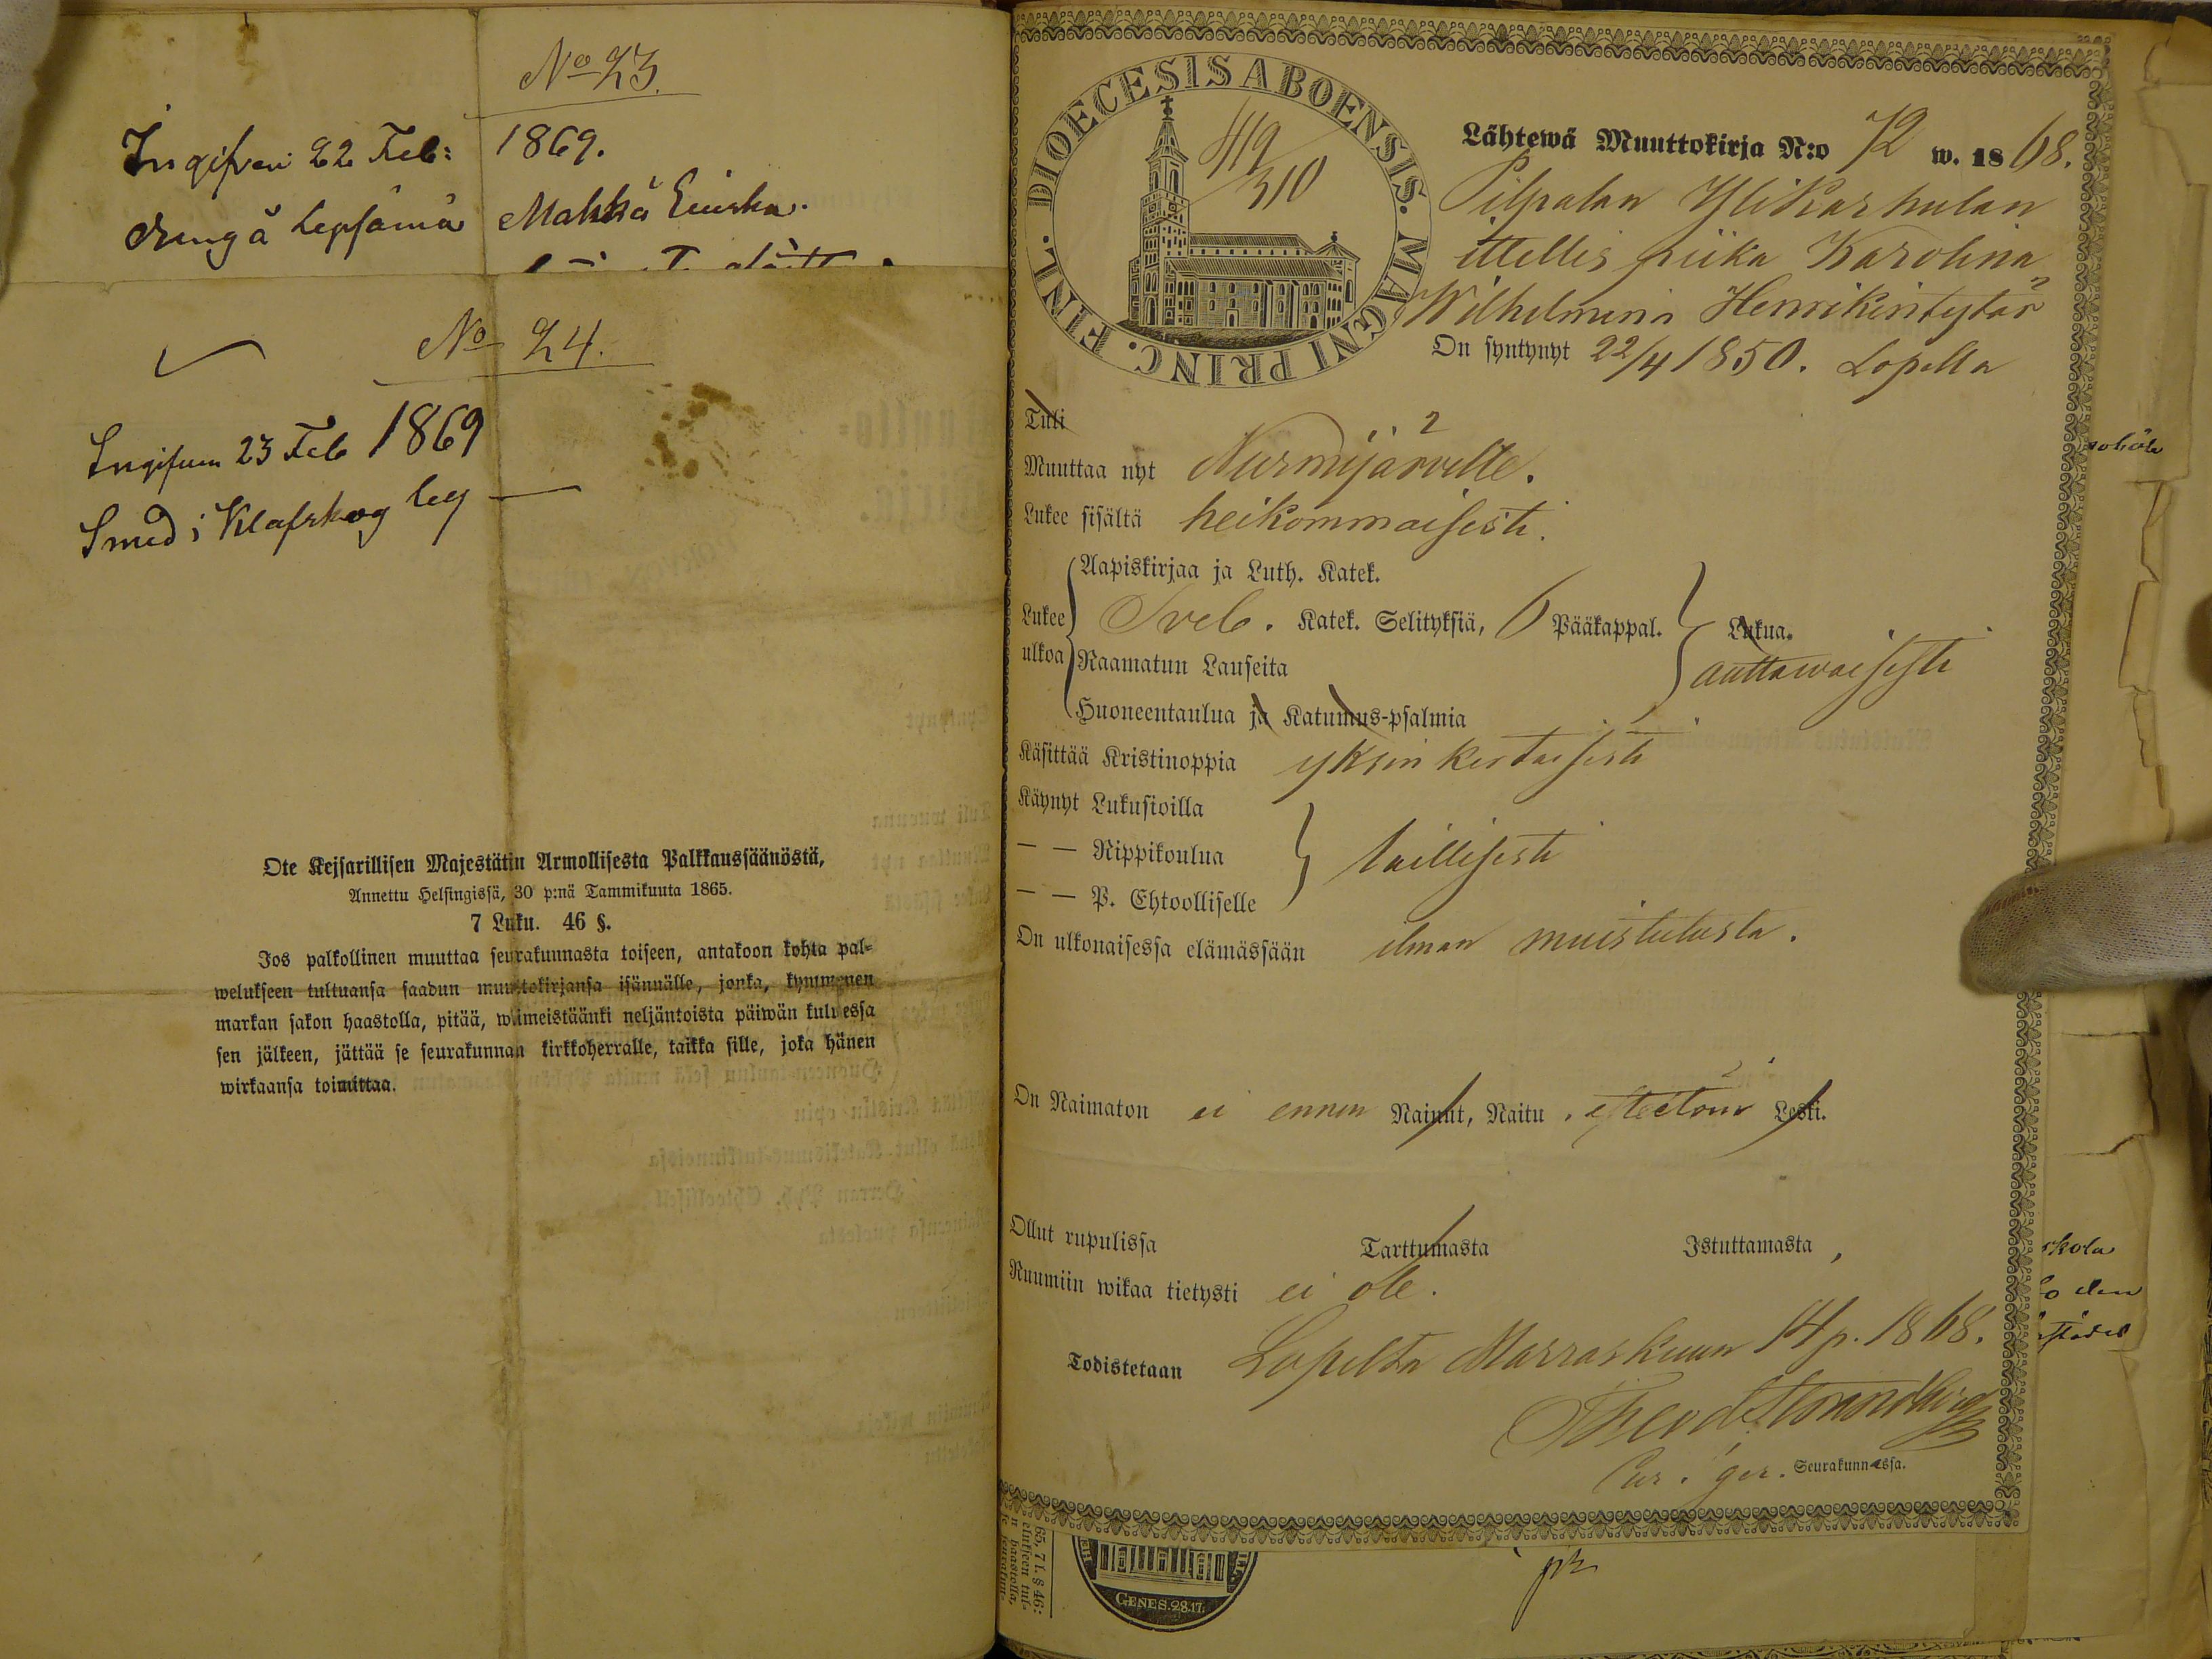 No 23.
Ingifven 22 Feb: 1869.
dreng å Lepsämä Mahka Eiuska.
No 24.
Ingifven 23 Feb 1869
Smed i Klafskog leg
Ote Keisarillisen Majestätin Armollisesta Palkkaussäänöstä,
Annettu Helsingissä, 30 p:nä Tammikuuta 1865.
7 Luku. 46 §.
Jos palkollinen muuttaa seurakunnasta toiseen, antakoon kohta pal-
welukseen tultuansa saadun muuttokirjansa isännälle, jonka, kymmenen
markan sakon haastolla, pitää, wiimeistäänki neljäntoista päiwän kuluessa
sen jälkeen, jättää se seurakunnan kirkkoherralle, taikka sille, joka hänen
wirkaansa toimittaa.
DIOECESIS ABOENSIS. MAGNI PRINC. FINL.
419
310
Lähtewä Muuttokirja N:o 72 w. 1868.
Pilpalan Ylikarhulan
ittellis piika Karolina
Wilhelmina Henrikintytär
On syntynyt 22/4 1850. Lopella
Tuli
Muuttaa nyt Nurmijärvelle.
Lukee sisältä heikommaisesti.
Aapiskirjaa ja Luth. Katek.
Lukee ulkoa Sveb. Katek. Selityksiä, 6 Pääkappal. Lukua.
Raamatun Lauseita auttawaisesti
Huoneentaulua ja Katumus-psalmia
Käsittää Kristinoppia yksinkertaisesti
Käynyt Lukusioilla
— — Rippikoulua laillisesti
— — P. Ehtoolliselle
On ulkonaisessa elämässään ilman muistutusta.
On Naimaton ei ennen Nainut, Naitu, esteetöin Leski.
Ollut rupulissa Tarttumasta Istuttamasta,
Ruumiin wikaa tietysti ei ole.
Todistetaan Lopelta Marraskuun 14 p. 1868.
Theod Strandberg
Cur. ger. Seurakunnassa.
GENES.28.17.
65, 7 l. § 46: